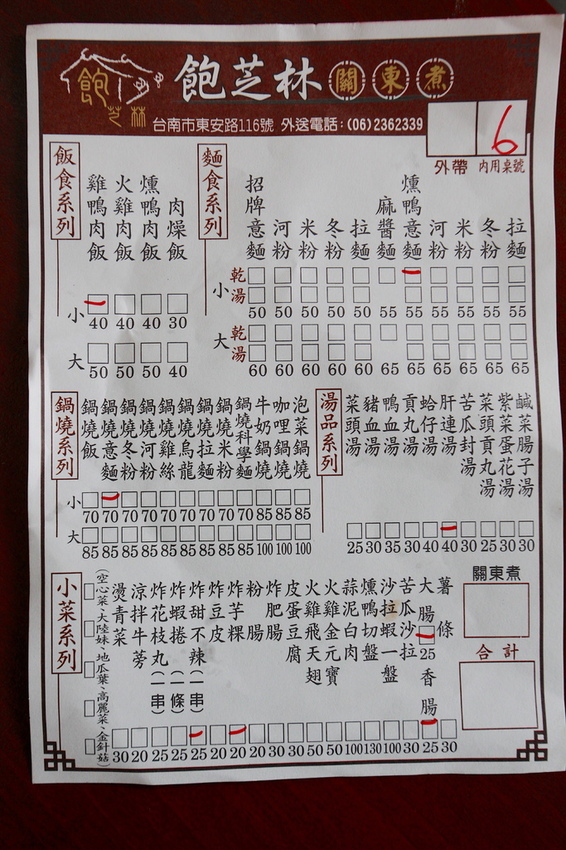 飽芝林 關東煮
飽
芝林
台南市東安路116號 外送電話:(06)2362339
6
外帶 內用桌號
飯食系列
雞鴨肉飯
火雞肉飯
燻鴨肉飯
肉燥飯
小
40 40 40 30
大
50 50 50 40
麵食系列
招牌意麵
河粉
米粉
冬粉
拉麵
麻醬麵
燻鴨意麵
河粉
米粉
冬粉
拉麵
小 乾 湯
50 50 50 50 50 55 55 55 55 55 55
大 乾 湯
60 60 60 60 60 65 65 65 65 65 65
鍋燒系列
鍋燒飯
鍋燒意麵
鍋燒冬粉
鍋燒河粉
鍋燒雞絲
鍋燒烏龍
鍋燒拉麵
鍋燒米粉
鍋燒科學麵
牛奶鍋燒
咖哩鍋燒
泡菜鍋燒
小
70 70 70 70 70 70 70 70 70 85 85 85
大
85 85 85 85 85 85 85 85 85 100 100 100
湯品系列
菜頭湯
豬血湯
鴨血湯
貢丸湯
蛤仔湯
肝連湯
苦瓜封湯
菜頭貢丸湯
紫菜蛋花湯
鹹菜腸子湯
25 30 35 30 40 40 30 25 30 30
小菜系列
(空心菜、大陸妹、地瓜葉、高麗菜、金針菇)
燙青菜
涼拌牛蒡
炸花枝丸(一串)
炸蝦捲(一條)
炸甜不辣(一串)
炸豆皮
炸芋粿
粉腸
炸肥腸
皮蛋豆腐
火雞飛天翅
火雞金元寶
蒜泥白肉
燻鴨切盤
沙拉蝦一盤
苦瓜沙拉
大腸
25
香腸
薯條
30 20 25 25 25 20 20 20 30 30 50 50 100 130 100 30 25 30
關東煮
合計